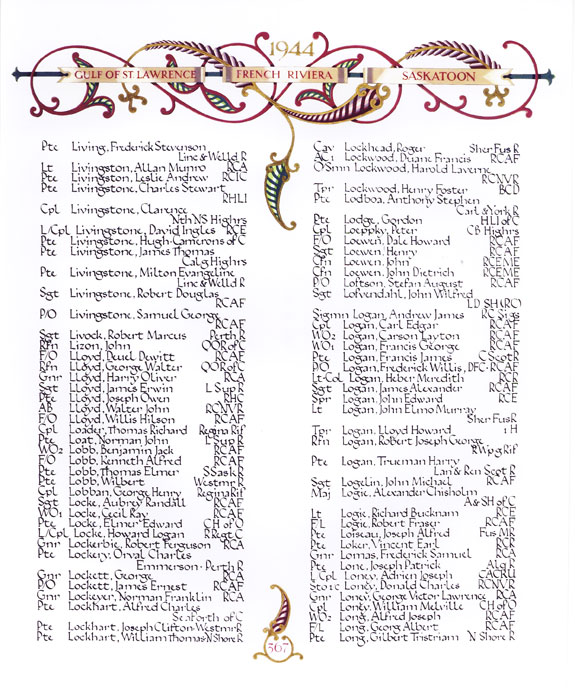 1944
GULF OF ST. LAWRENCE FRENCH RIVIERA SASKATOON
Ptc Living, Frederick Stevenson
Linc & Welld R
Lt Livingston, Allan Munro RCA
Ptc Livingston, Leslie Andrew RCIC
Ptc Livingstone, Charles Stewart
RHLI
Cpl Livingstone, Clarence
Nth NS Highrs
L/Cpl Livingstone, David Ingles RCE
Ptc Livingstone, Hugh-Camerons of C
Ptc Livingstone, James Thomas
Calg Highrs
Ptc Livingstone, Milton Evangeline
Linc & Welld R
Sgt Livingstone, Robert Douglas
RCAF
P/O Livingstone, Samuel George
RCAF
Sgt Livock, Robert Marcus Perth R
Rfn Lizon, John QOR of C
F/O Lloyd, Deuel Dewitt RCAF
Rfn Lloyd, George Walter QOR of C
Gnr Lloyd, Harry Oliver RCA
Sgt Lloyd, James Erwin L Sup R
Ptc Lloyd, Joseph Owen RHC
AB Lloyd, Walter John RCNVR
F/O Lloyd, Willis Hilson RCAF
Cpl Loader, Thomas Richard Regina Rif
Ptc Loat, Norman John L Sup R
WO2 Lobb, Benjamin Jack RCAF
F/O Lobb, Kenneth Alfred RCAF
Ptc Lobb, Thomas Elmer S Sask R
Ptc Lobb, Wilbert Westmr R
Cpl Lobban, George Henry Regina Rif
Sgt Locke, Aubrey Randall RCAF
WO1 Locke, Cecil Ray RCAF
Ptc Locke, Elmer Edward CH of O
L/Cpl Locke, Howard Logan R Regt C
Gnr Lockerbie, Robert Ferguson RCA
Ptc Lockery, Orval Charles
Emmerson · Perth R
Gnr Lockett, George RCA
P/O Lockett, James Ernest RCAF
Gnr Lockeyer, Norman Franklin RCA
Ptc Lockhart, Alfred Charles
Seaforth of C
Ptc Lockhart, Joseph Clifton · Westmr R
Ptc Lockhart, William Thomas · N Shore R
Cav Lockhead, Roger Sher Fus R
AC1 Lockwood, Duane Francis RCAF
O'Smn Lockwood, Harold Laverne
RCNVR
Tpr Lockwood, Henry Foster BCD
Ptc Lodboa, Anthony Stephen
Carl & York R
Ptc Lodge, Gordon HLI of C
Cpl Loeppky, Peter CB Highrs
F/O Loewen, Dale Howard RCAF
Sgt Loewen, Henry RCAF
Cfn Loewen, John RCEME
Cfn Loewen, John Dietrich RCEME
P/O Loftson, Stefan August RCAF
Sgt Lofvendahl, John Wilfred
LD SH (RC)
Sigmn Logan, Andrew James RC Sigs
Cpl Logan, Carl Edgar RCAF
WO2 Logan, Carson Layton RCAF
WO1 Logan, Francis George RCAF
Ptc Logan, Francis James C Scot R
P/O Logan, Frederick Willis, DFC · RCAF
Lt-Col Logan, Heber Meredith RCR
Sgt Logan, James Alexander RCAF
Spr Logan, John Edward RCE
Lt Logan, John Elmo Murray
Sher Fus R
Tpr Logan, Lloyd Howard 1 H
Rfn Logan, Robert Joseph George
R Wpg Rif
Ptc Logan, Trueman Harry
Lan & Ren Scot R
Sgt Logelin, John Michael RCAF
Maj Logie, Alexander Chisholm
A & SH of C
Lt Logie, Richard Bucknam RCE
F/L Logie, Robert Fraser RCAF
Ptc Loiseau, Joseph Alfred Fus MR
Ptc Loker, Vincent Earl RCR
Gnr Lomas, Frederick Samuel RCA
Ptc Lone, Joseph Patrick Alq R
L Cpl Loney, Adrien Joseph CACRU
Loney, Donald Charles RCNVR
Gnr Loney, George Victor Lawrence RCA
Cpl Loney, William Melville CH of O
WO2 Long, Alfred Joseph RCAF
F/L Long, Georg Albert RCAF
Ptc Long, Gilbert Tristriam N Shore R
307